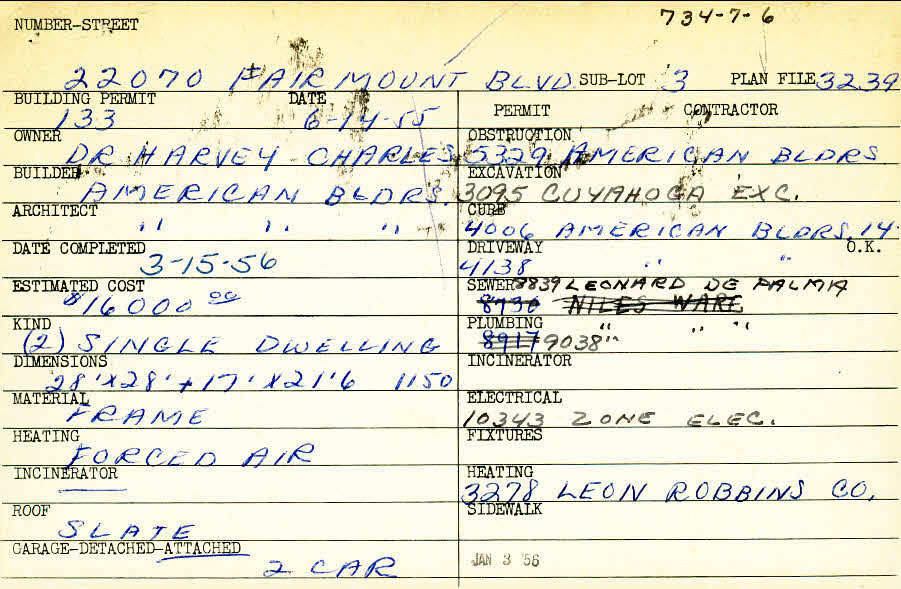 734-7-6
NUMBER-STREET
22070 FAIRMOUNT BLVD SUB-LOT 3 PLAN FILE 3239
BUILDING PERMIT DATE
133 6-14-55
OWNER
DR HARVEY CHARLES
BUILDER
AMERICAN BLDRS.
ARCHITECT
" " "
DATE COMPLETED
3-15-56
ESTIMATED COST
$16000 00
KIND
(2) SINGLE DWELLING
DIMENSIONS
28'X28' + 17'X21'6 1150
MATERIAL
FRAME
HEATING
FORCED AIR
INCINERATOR
ROOF
SLATE
GARAGE-DETACHED-ATTACHED
2 CAR
PERMIT CONTRACTOR
OBSTRUCTION
5329 AMERICAN BLDRS
EXCAVATION
3095 CUYAHOGA EXC.
CURB
4006 AMERICAN BLDRS. 14-
DRIVEWAY O.K.
4138 " "
SEWER 8839 LEONARD DE PALMA
8730 NILES WARE
PLUMBING " " "
8917 9038 "
INCINERATOR
ELECTRICAL
10343 ZONE ELEC.
FIXTURES
HEATING
3278 LEON ROBBINS CO.
SIDEWALK
JAN 3 56